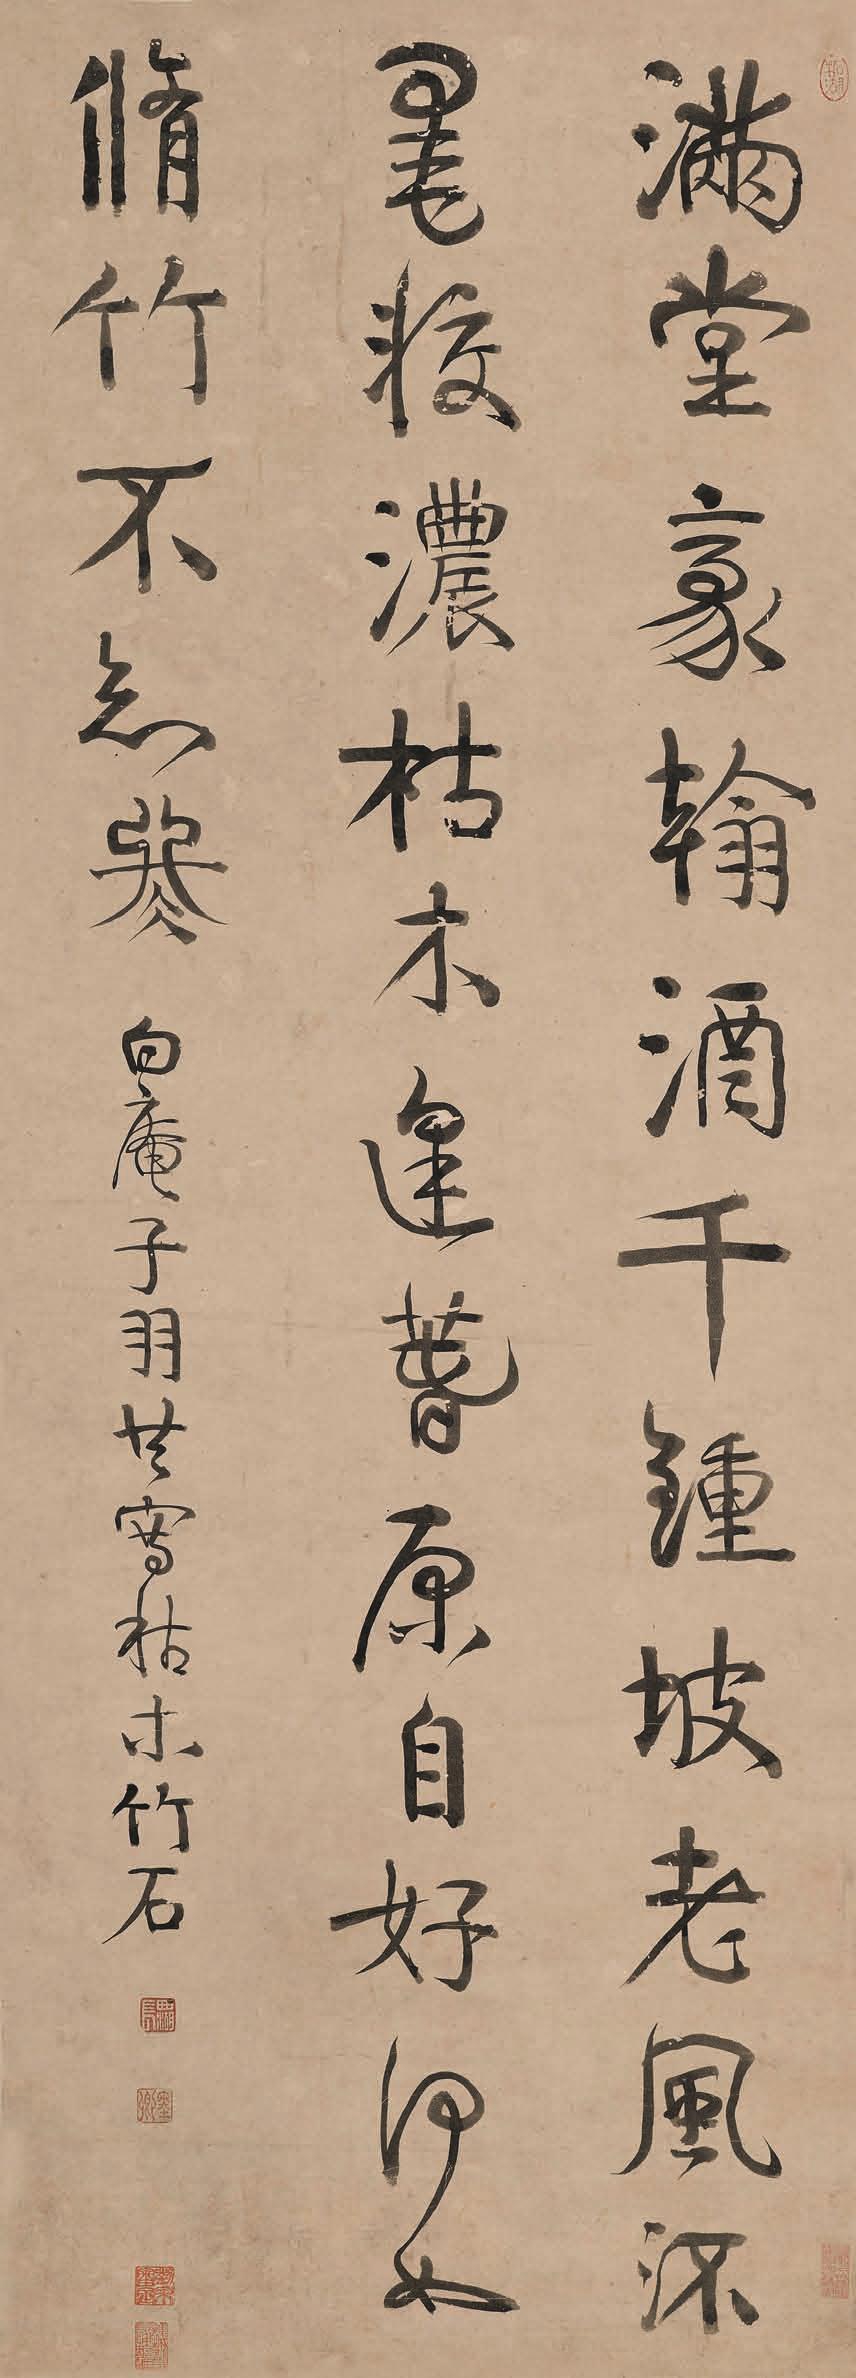 滿堂豪翰酒千鍾坡老風流
墨妝濃枯木逢春原自好何如
脩竹不知寒
白庵子羽共寫枯木竹石